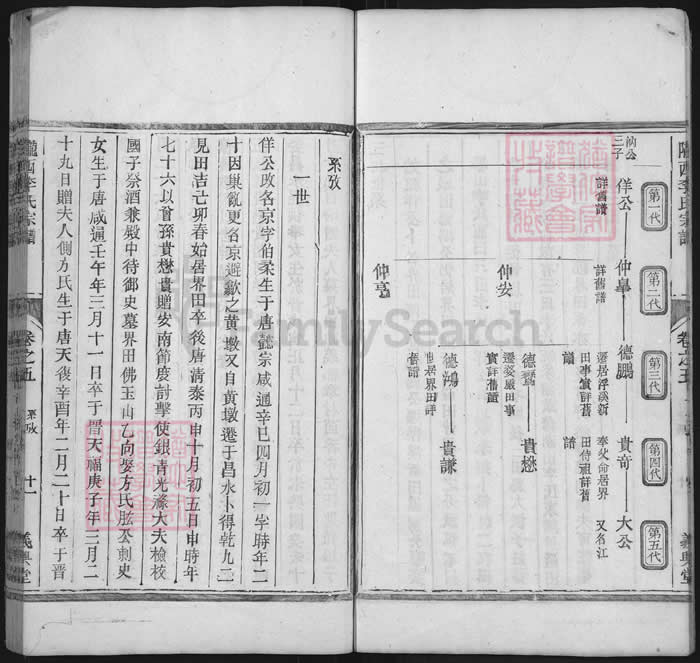 隴西李氏宗譜
卷之五
義興堂
第一代
第二代
第三代
第四代
第五代
汭公
三子
佯公
仲臯
德鵬
貴奇
大公
詳舊譜
詳舊譜
遷居浮溪新
田事實詳舊
譜
奉父命居界
田侍祖詳舊
譜
又名江
仲安
德鸞
貴懋
遷婺嚴田事
實詳舊譜
德鴻
貴謙
世居界田詳
仲亮
系攷
一世
佯公改名京字伯柔生于唐懿宗咸通辛巳四月初一字時年二
十因巢亂更名京避歙之黃墩又自黃墩遷于昌水卜得乾九二
見田吉己卯春始居界田卒後唐清泰丙申十月初五日申時年
七十六以曾孫貴懋貴贈安南節度討擊使銀青光祿大夫檢校
國子祭酒兼殿中待御史墓界田佛玉山乙向娶方氏肱公刺史
女生于唐咸通壬午年三月十一日卒于晋天福庚子年三月二
十九日贈夫人側方氏生于唐天復辛酉年二月二十日卒于晋
隴西李氏宗譜
卷之五
系攷
十一
義興堂
FamilySearch